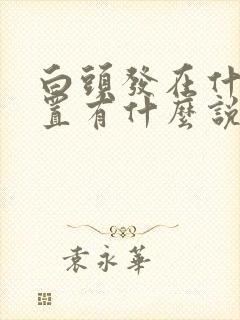 白頭發在什
置有什麼說
袁永華